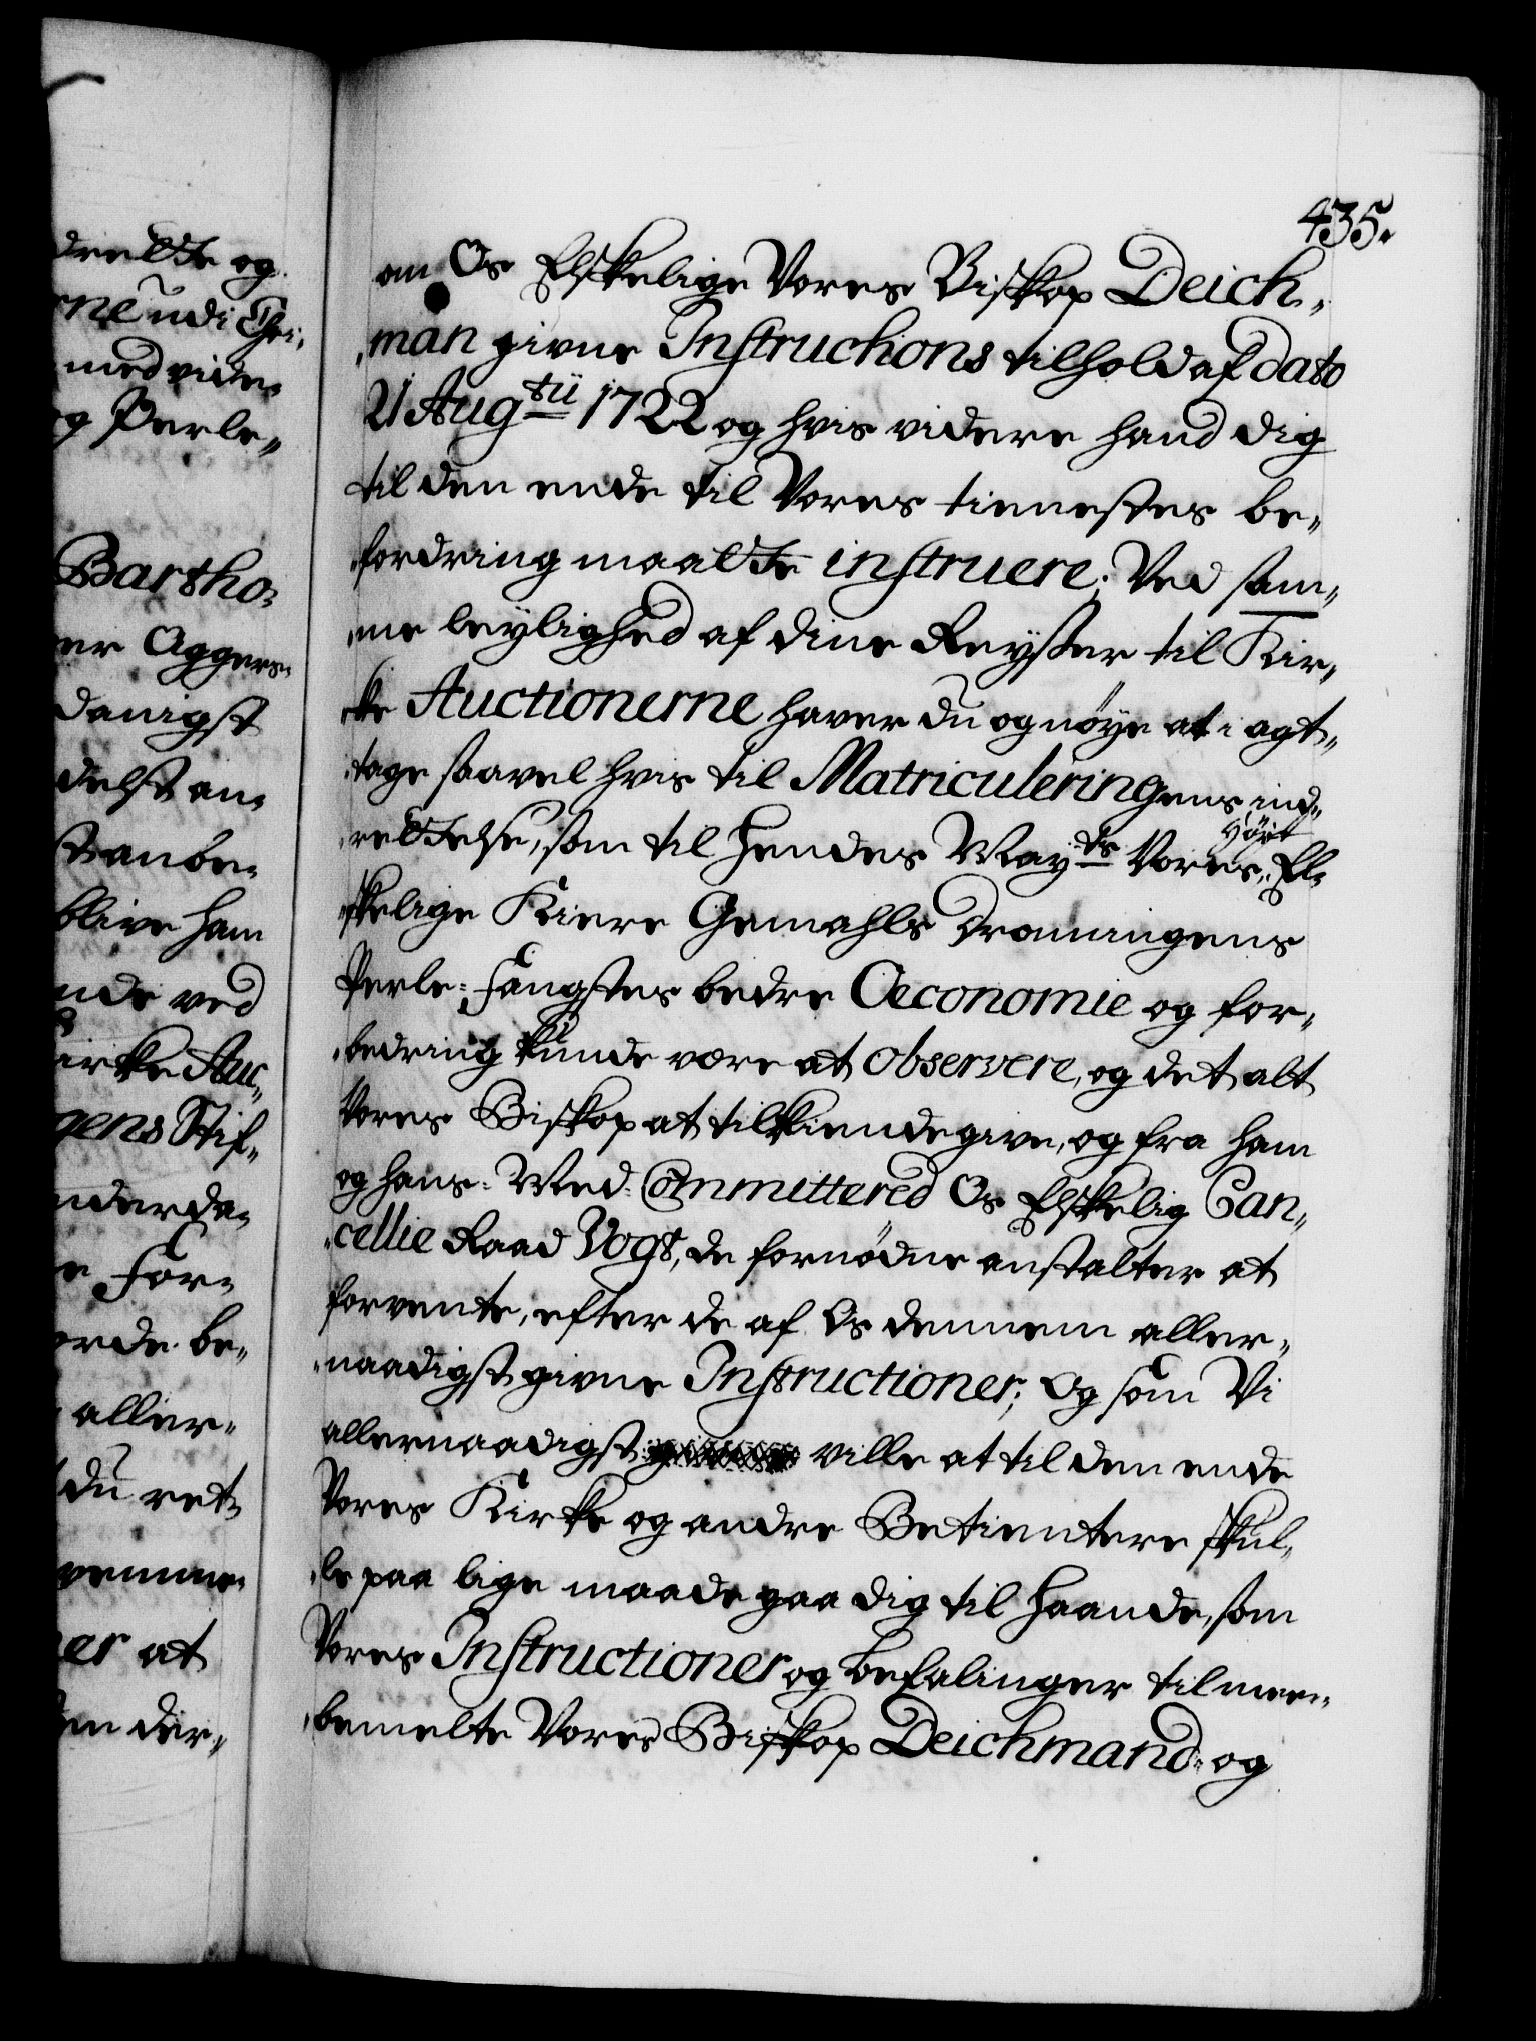 435.
om Os Elskelige Vores Biskop Deich„
„man givne Instructions tilhold af dato
21 Aug<sup>tii</sup> 1722 og hvis videre hand dig
til den ende til Vores tienestes be„
„fordring maatte instruere; Ved sam„
„me leylighed af dine Reyser til Kir„
„ke Auctionerne haver du og nöye at i agt„
„tage saavel hvis til Matriculeringens ind„
„rettelse, som til Hendes May<sup>ts</sup> Vores, Höjt El„
„skelige Kiere Gemahls Dronningens
Perle-Fangstes bedre Oeconomie og for„
„bedring kunde være at observere, og det alt
Vores Biskop at tilkiendegive, og fra ham
og hans Med-Committered Os Elskelig Can„
„cellie Raad Vogt, de fornödne anstalter at
forvente, efter de af Os dennem aller„
„naadigst givne Instructioner; Og som Vi
allernaadigst ville at til den ende
Vores Kirke og andre Betientere skul„
„le paa lige maade gaa dig til Haande, som
Vores Instructioner og befalinger til meer„
„bemelte Vores Biskop Deichmand og
drette og
rne udi Chri„
med vide„
og Perle„
Bartho„
er Aggers„
danigst
delst an„
st anbe„
blive ham
nde ved
irke Auc„
gens Stif„
nderda„
e For„
orde be„
aller„
du ret„
vemme„
er at
em der„